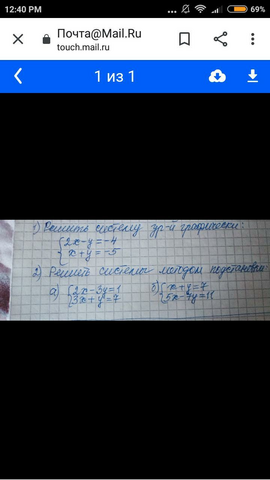 12:40 PM ... 69%
Почта@Mail.Ru
touch.mail.ru
1 из 1
1) Решить систему ур-й графически:
{2x-y=-4
{x+y=-5
2) Решить системы методом подстановки
а) {2x-3y=1 б) {x+y=7
{3x+y=7 {5x-7y=11